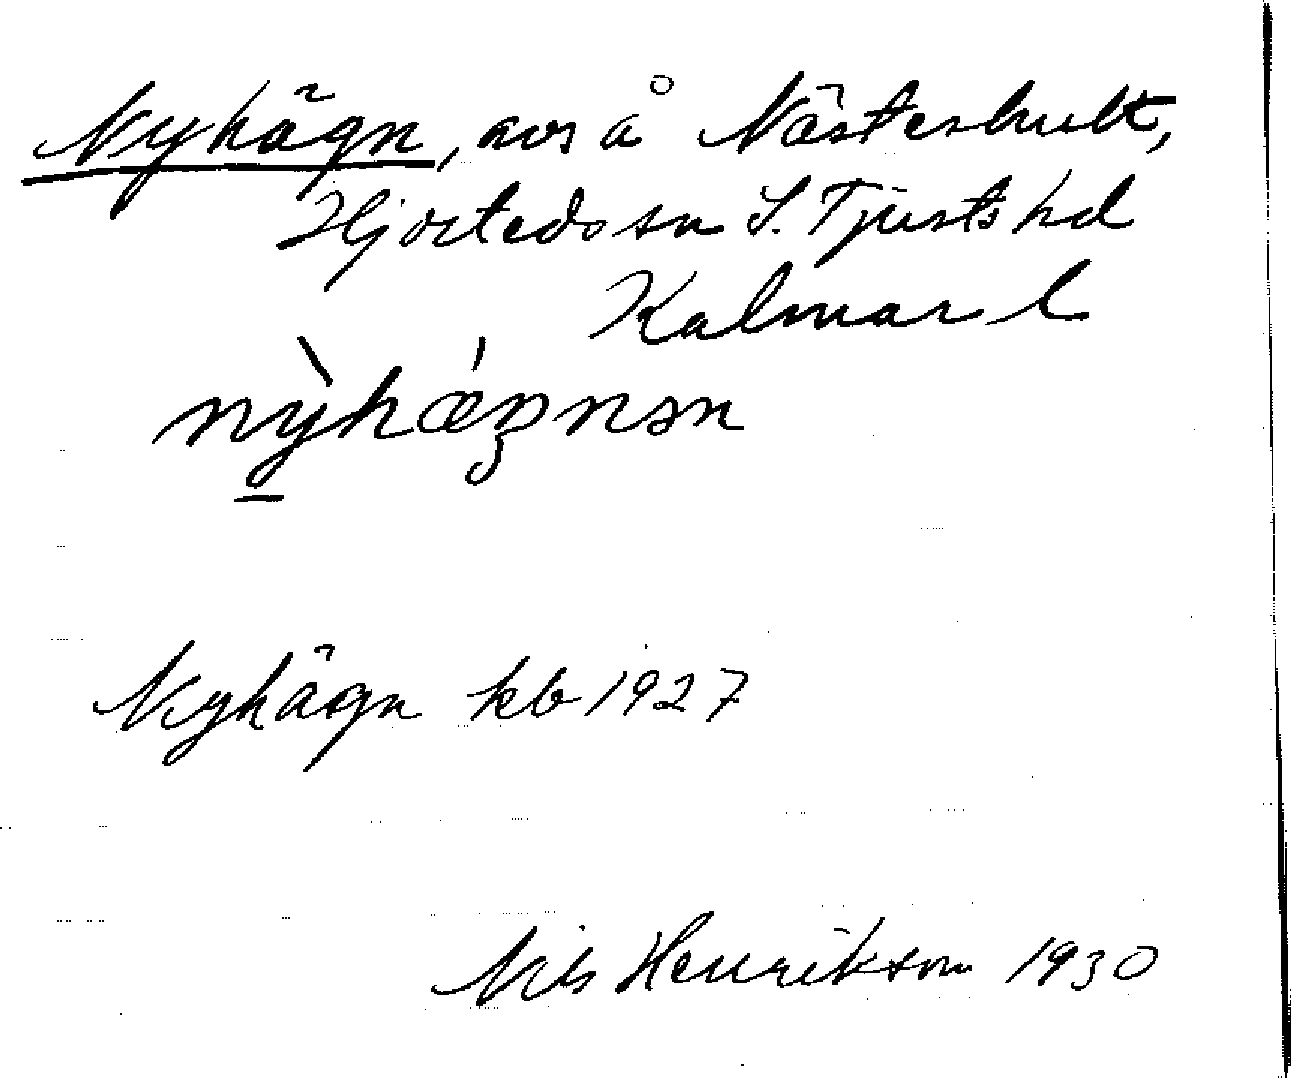 Nyhägn, avs å Nästerhult,
Hjorteds sn S. Tjusts hd
Kalmar l
nỳhǽgnən
Nyhägn kb 1927
Nils Henrikson 1930